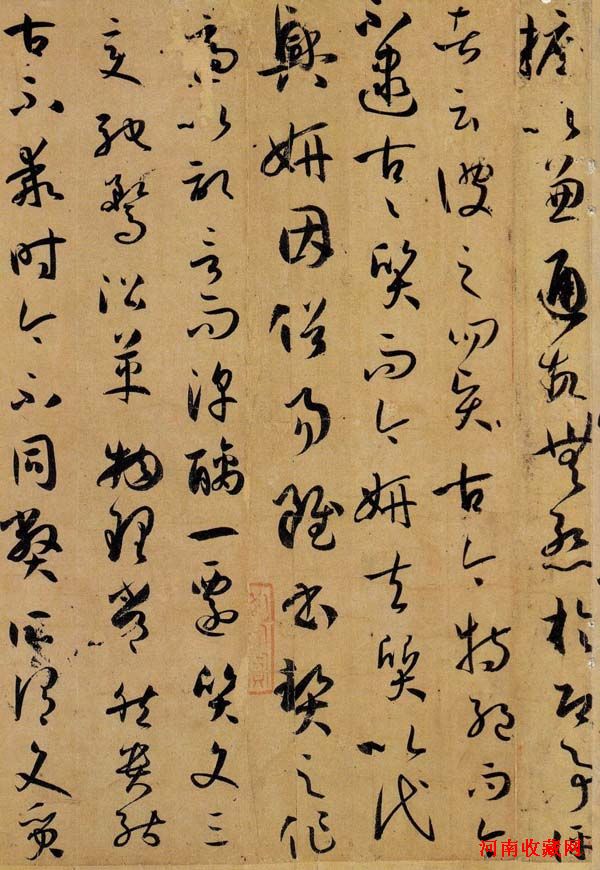 摭以兼通故無慚於即事評
者云彼之四賢古今特絕而今
不逮古々質而今妍夫質以代
興妍因俗易雖書契之作
適以記言而淳醨一遷質文三
變馳騖沿革物理常然貴能
古不乖時今不同弊所謂文質
河南收藏网